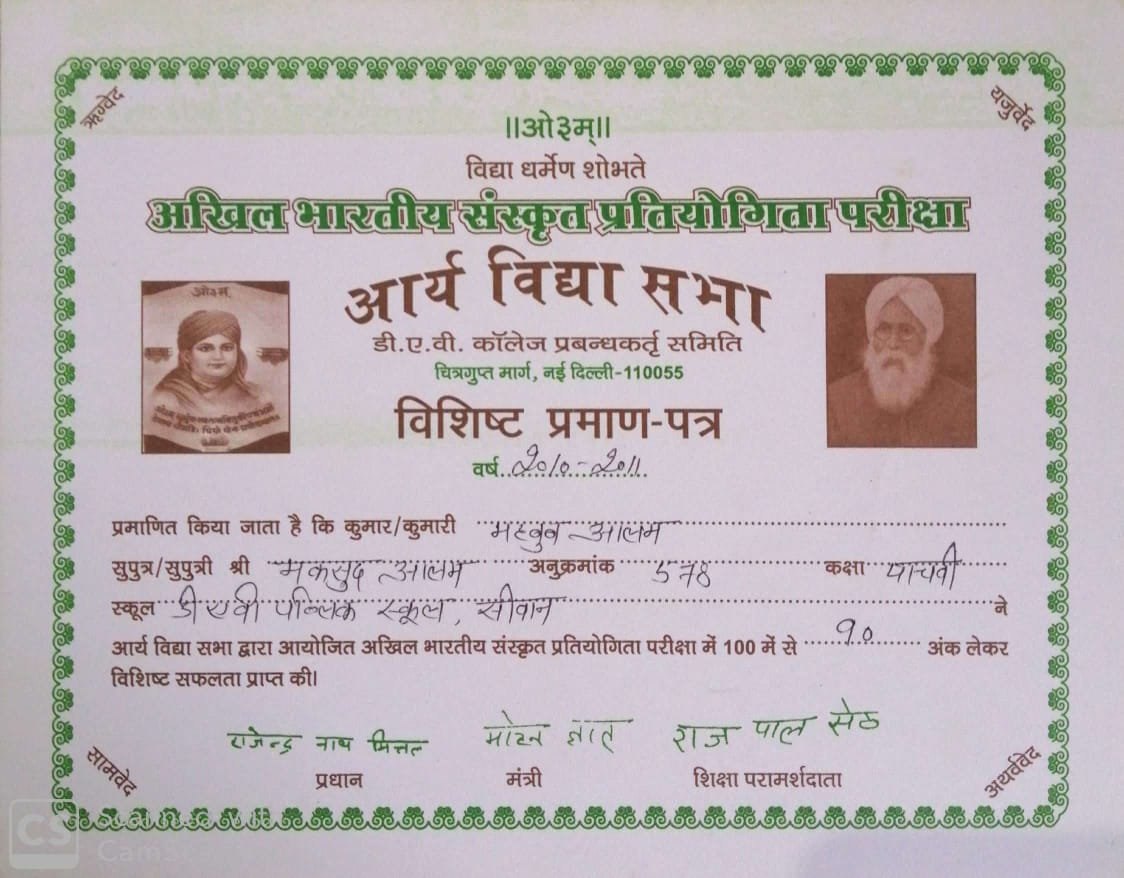 ऋग्वेद
यजुर्वेद
॥ओ३म्॥
विद्या धर्मेण शोभते
अखिल भारतीय संस्कृत प्रतियोगिता परीक्षा
आर्य विद्या सभा
ओ३म्
डी.ए.वी. कॉलेज प्रबन्धकर्तृ समिति
चित्रगुप्त मार्ग, नई दिल्ली-110055
विशिष्ट प्रमाण-पत्र
वर्ष २०१०-२०११
प्रमाणित किया जाता है कि कुमार/कुमारी महबुब आलम
सुपुत्र/सुपुत्री श्री मकसुद आलम अनुक्रमांक ५७८ कक्षा पाचवी
स्कूल डी एवी पब्लिक स्कूल, सीवान ने
आर्य विद्या सभा द्वारा आयोजित अखिल भारतीय संस्कृत प्रतियोगिता परीक्षा में 100 में से 90 अंक लेकर
विशिष्ट सफलता प्राप्त की।
राजेन्द्र नाथ मित्तल मोहन लाल राज पाल सेठ
प्रधान मंत्री शिक्षा परामर्शदाता
सामवेद
अथर्ववेद
CS Scanned with
CamSc